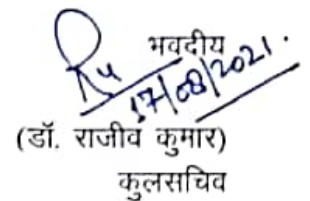 भवदीय
17/08/2021.
(डॉ. राजीव कुमार)
कुलसचिव